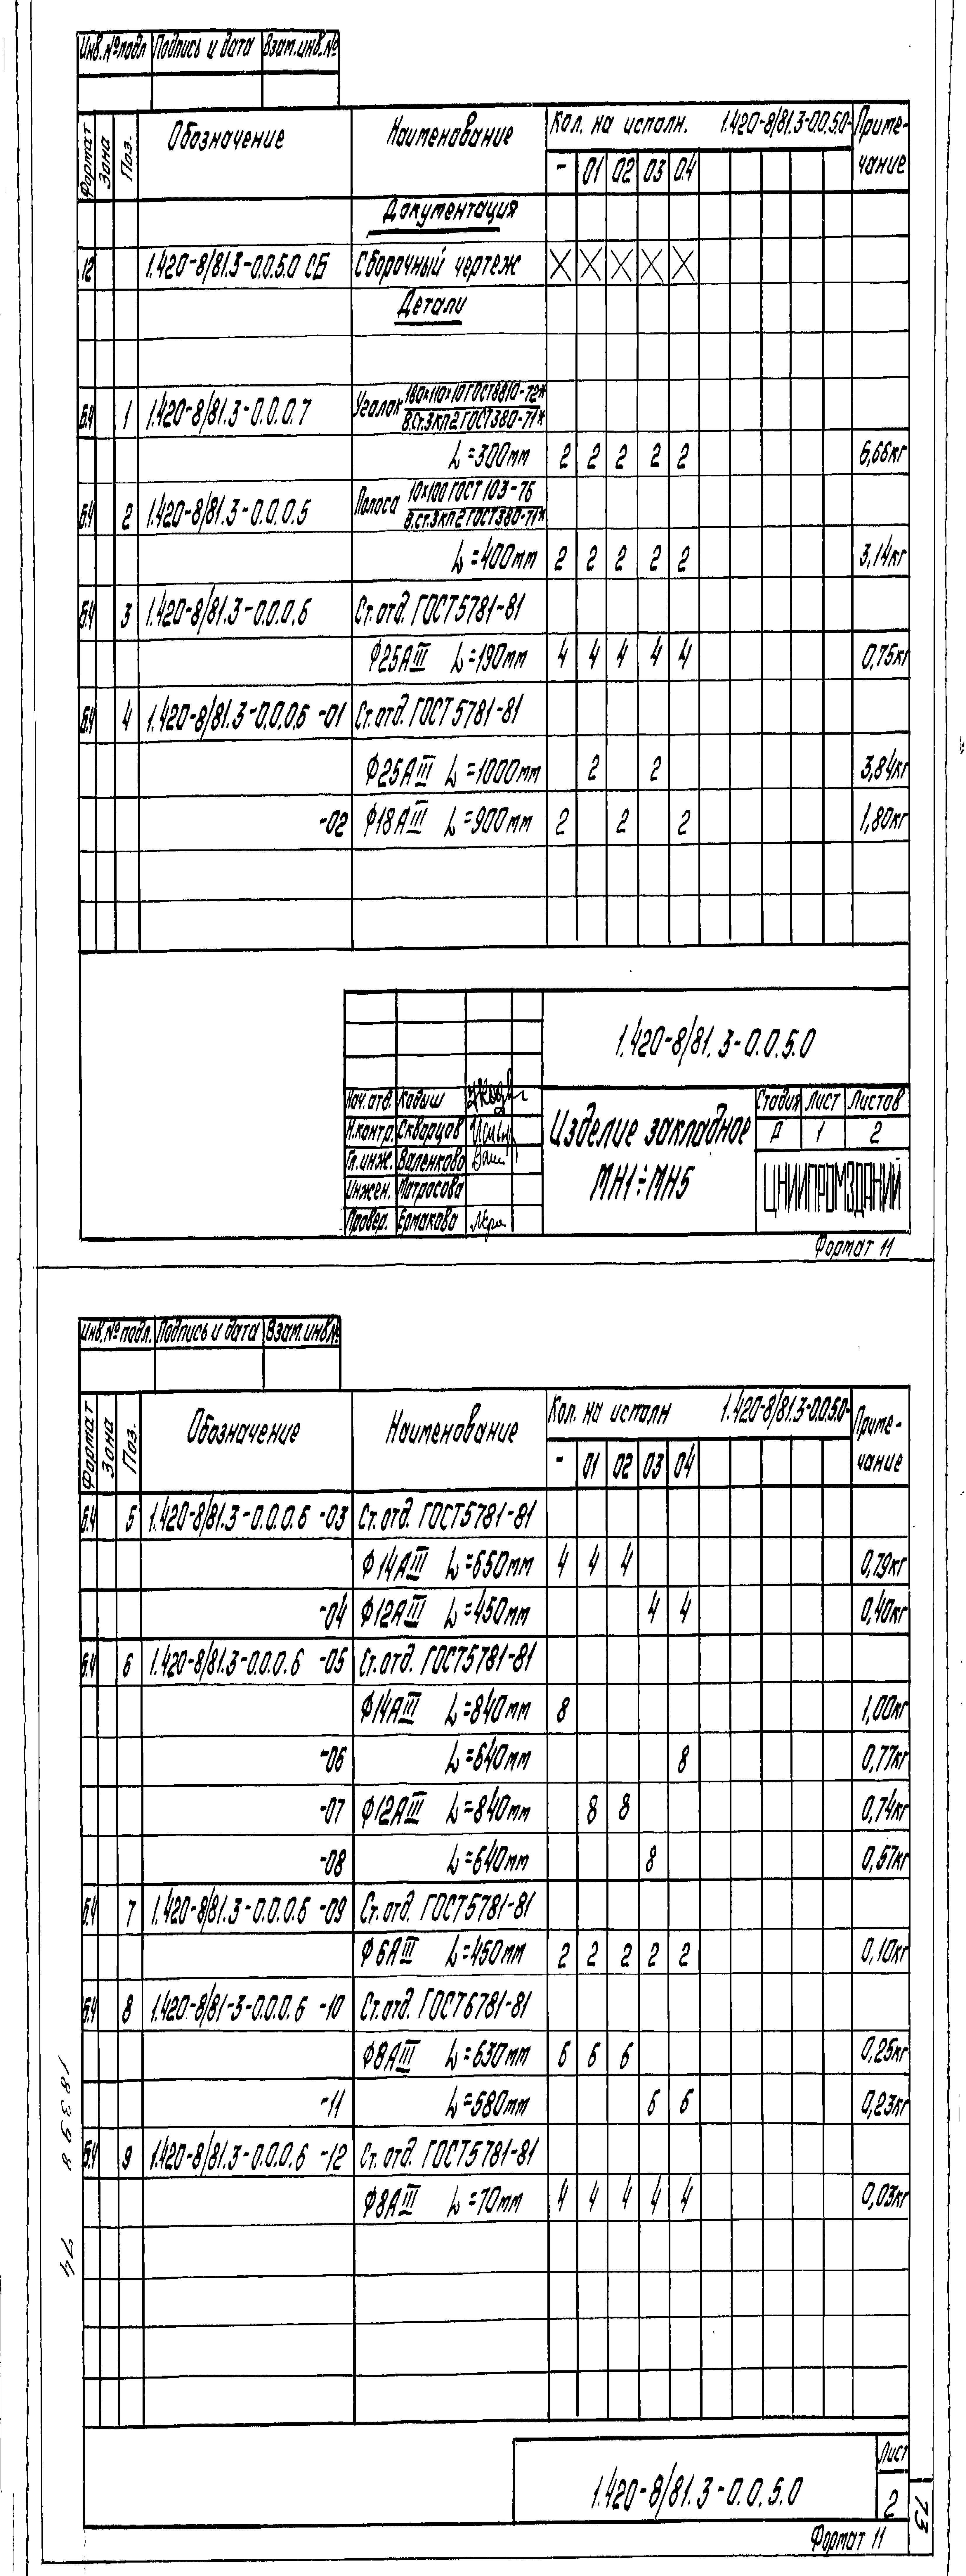 Инв.№подл Подпись и дата Взам.инв.№
Формат Зона Поз. Обозначение Наименование Кол. на исполн. 1.420-8/81.3-0.0.5.0- Приме-
чание
- 01 02 03 04
Документация
12 1.420-8/81.3-0.0.5.0 СБ Сборочный чертеж X X X X X
Детали
Б.Ч 1 1.420-8/81.3-0.0.0.7 Уголок 180х110х10 ГОСТ8810-72*
В.Ст.3кп2 ГОСТ380-71*
L=300мм 2 2 2 2 2 6,66кг
Б.Ч 2 1.420-8/81.3-0.0.0.5 Полоса 10х100 ГОСТ 103-76
В.Ст.3кп2 ГОСТ380-71*
L=400мм 2 2 2 2 2 3,14кг
Б.Ч 3 1.420-8/81.3-0.0.0.6 Ст.отд. ГОСТ5781-81
Ф25АIII L=190мм 4 4 4 4 4 0,75кг
Б.Ч 4 1.420-8/81.3-0.0.0.6 -01 Ст.отд. ГОСТ 5781-81
Ф25АIII L=1000мм 2 2 3,84кг
-02 Ф18АIII L=900мм 2 2 2 1,80кг
1.420-8/81.3-0.0.5.0
Нач.отд. Кодыш
Н.контр. Скварцов
Гл.инж. Валенково
Инжен. Матросова
Провер. Ермакова
Изделие закладное
МН1÷МН5
Стадия Лист Листов
Р 1 2
ЦНИИПРОМЗДАНИЙ
Формат 11
Инв.№ подл. Подпись и дата Взам.инв.№
Формат Зона Поз. Обозначение Наименование Кол. на исполн 1.420-8/81.3-0.0.5.0- Приме-
чание
- 01 02 03 04
Б.Ч 5 1.420-8/81.3-0.0.0.6 -03 Ст.отд. ГОСТ5781-81
Ф14АIII L=650мм 4 4 4 0,79кг
-04 Ф12АIII L=450мм 4 4 0,40кг
Б.Ч 6 1.420-8/81.3-0.0.0.6 -05 Ст.отд. ГОСТ5781-81
Ф14АIII L=840мм 8 1,00кг
-06 L=640мм 8 0,77кг
-07 Ф12АIII L=840мм 8 8 0,74кг
-08 L=640мм 8 0,57кг
Б.Ч 7 1.420-8/81.3-0.0.0.6 -09 Ст.отд. ГОСТ5781-81
Ф6АIII L=450мм 2 2 2 2 2 0,10кг
Б.Ч 8 1.420-8/81-3-0.0.0.6 -10 Ст.отд. ГОСТ6781-81
Ф8АIII L=630мм 6 6 6 0,25кг
-11 L=580мм 6 6 0,23кг
Б.Ч 9 1.420-8/81.3-0.0.0.6 -12 Ст.отд. ГОСТ5781-81
Ф8АIII L=70мм 4 4 4 4 4 0,03кг
18398 74
1.420-8/81.3-0.0.5.0
Лист
2
73
Формат 11